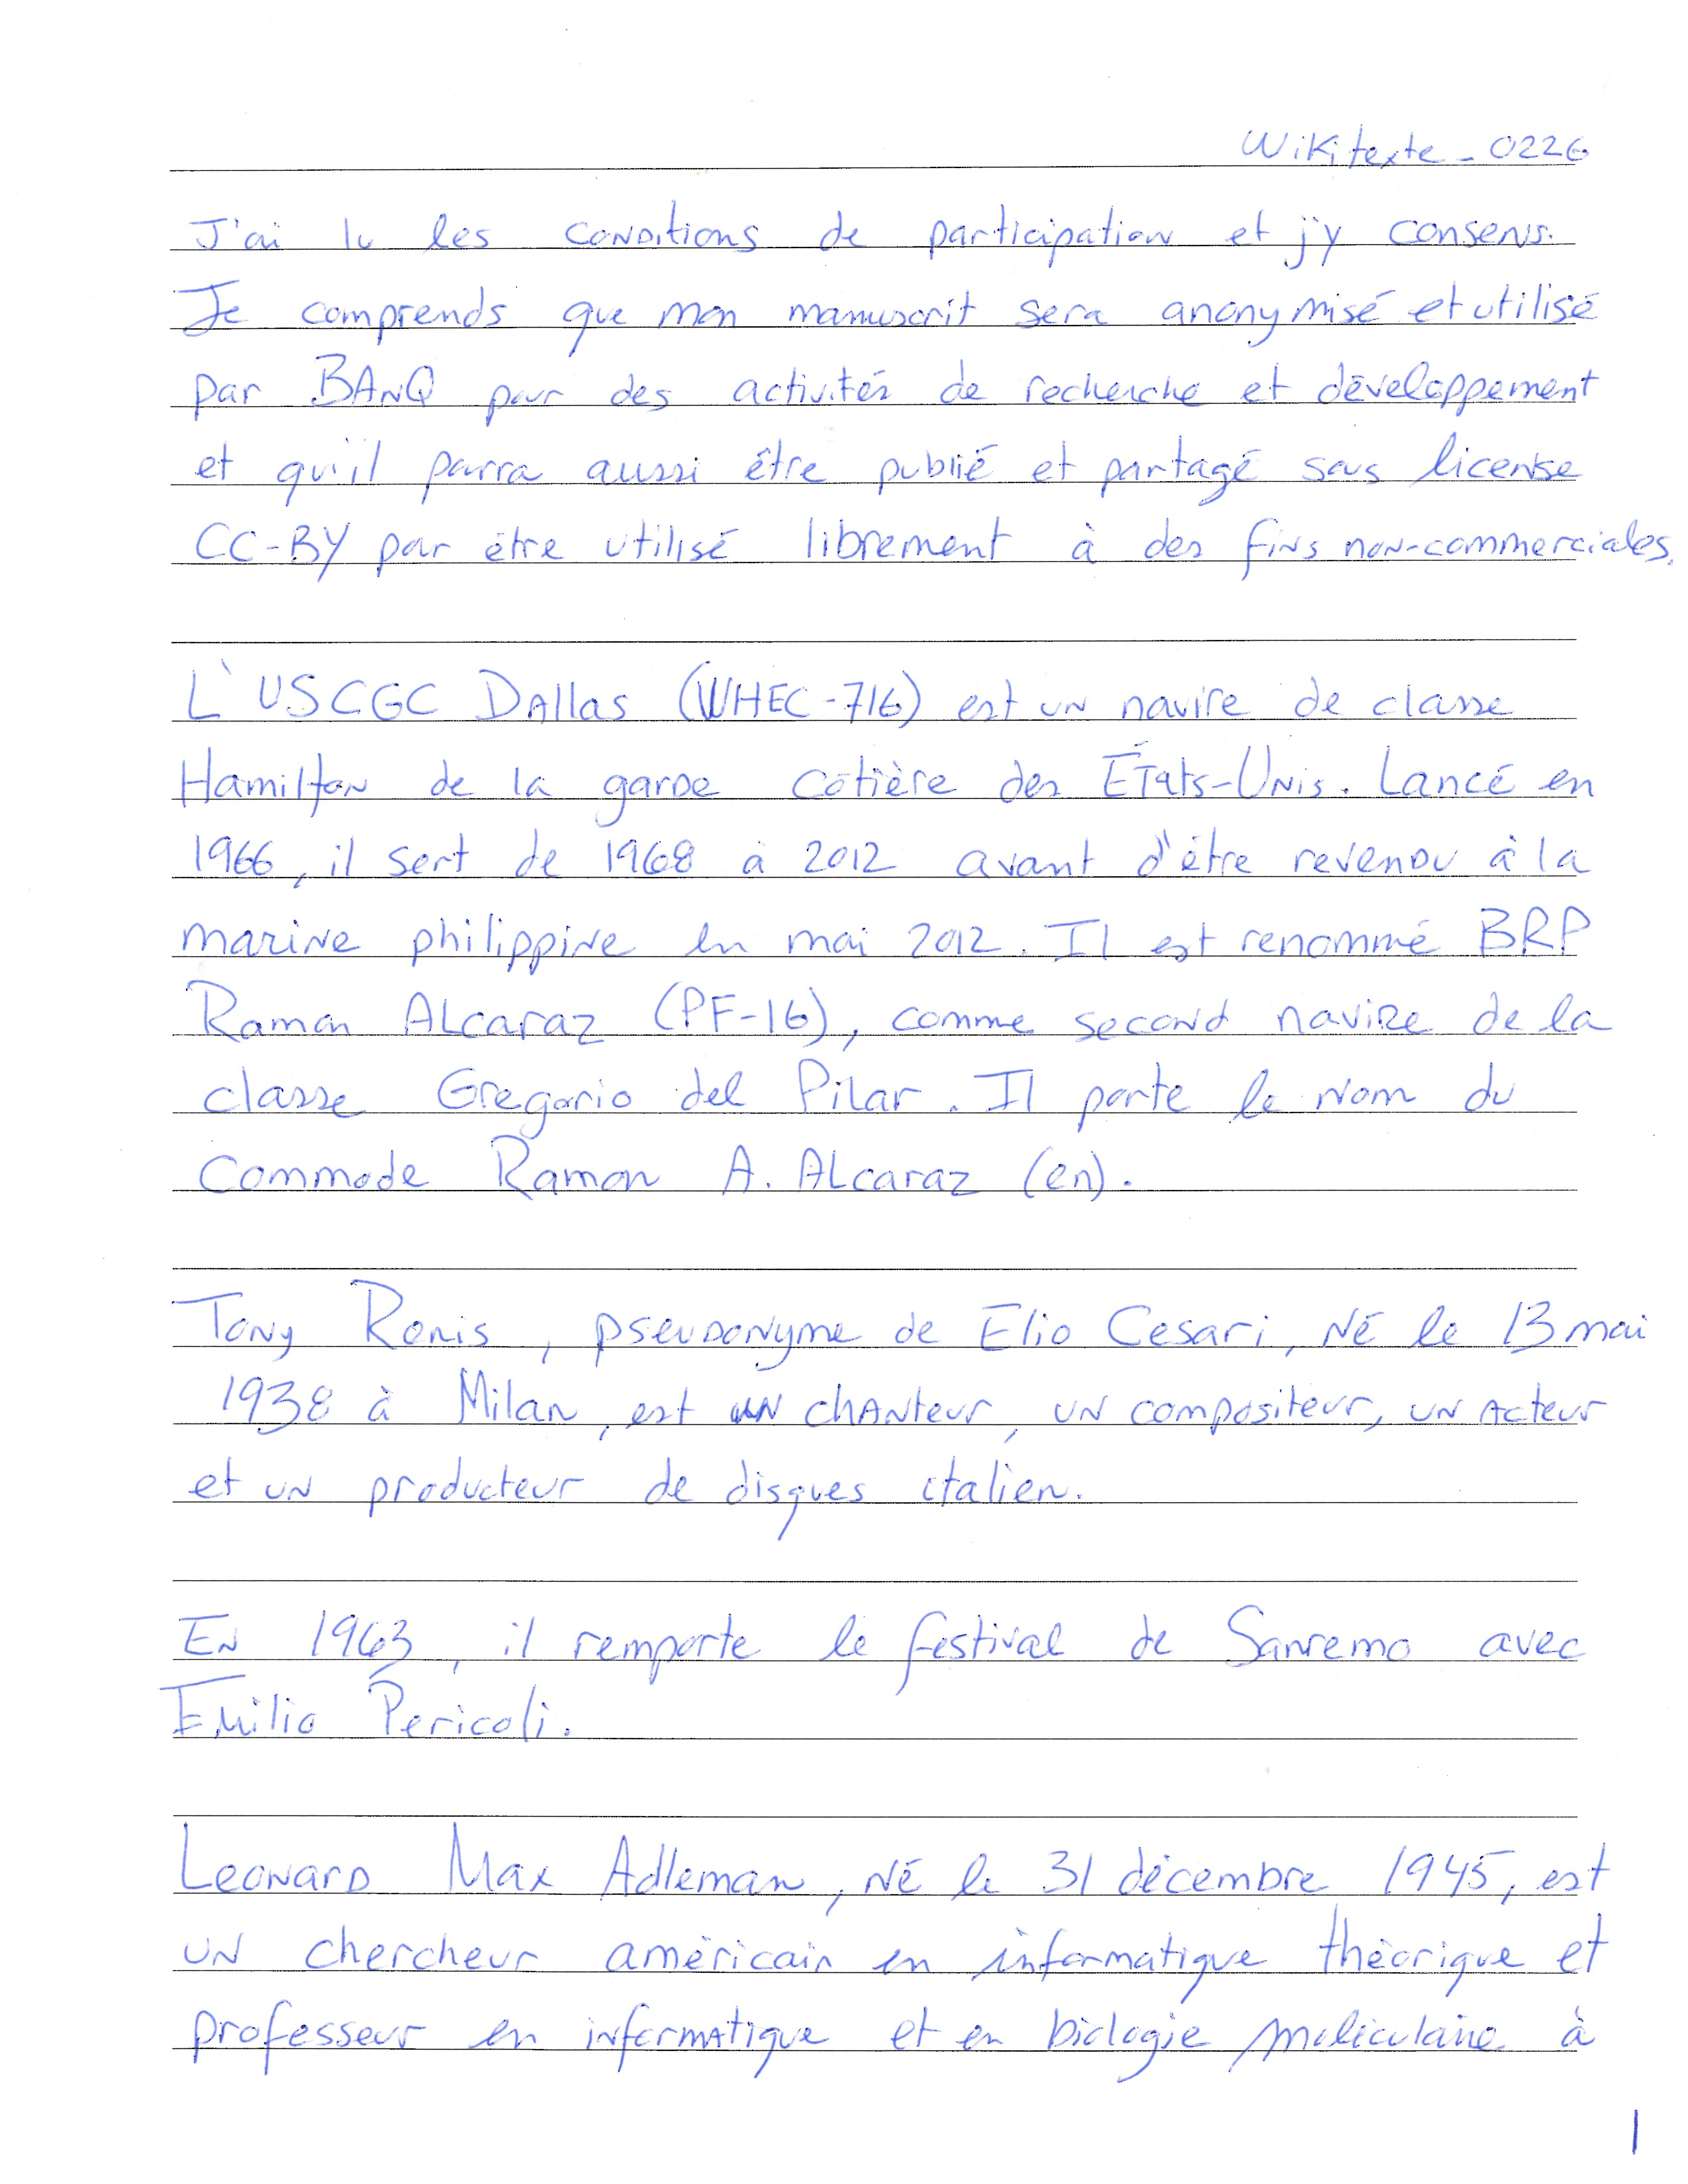 Wikitexte-0226
J'ai lu les conditions de participation et j'y consens.
Je comprends que mon manuscrit sera anonymisé et utilisé
par BAnQ pour des activités de recherche et développement
et qu'il pourra aussi être publié et partagé sous license
CC-BY pour être utilisé librement à des fins non-commerciales.
L'USCGC Dallas (WHEC-716) est un navire de classe
Hamilton de la garde côtière des États-Unis. Lancé en
1966, il sert de 1968 à 2012 avant d'être revendu à la
marine philippine en mai 2012. Il est renommé BRP
Ramon Alcaraz (PF-16), comme second navire de la
classe Gregorio del Pilar. Il porte le nom du
Commode Ramon A. Alcaraz (en).
Tony Renis, pseudonyme de Elio Cesari, né le 13 mai
1938 à Milan, est un chanteur, un compositeur, un acteur
et un producteur de disques italien.
En 1963, il remporte le festival de Sanremo avec
Emilio Pericoli.
Leonard Max Adleman, né le 31 décembre 1945, est
un chercheur américain en informatique théorique et
professeur en informatique et en biologie moléculaire à
1